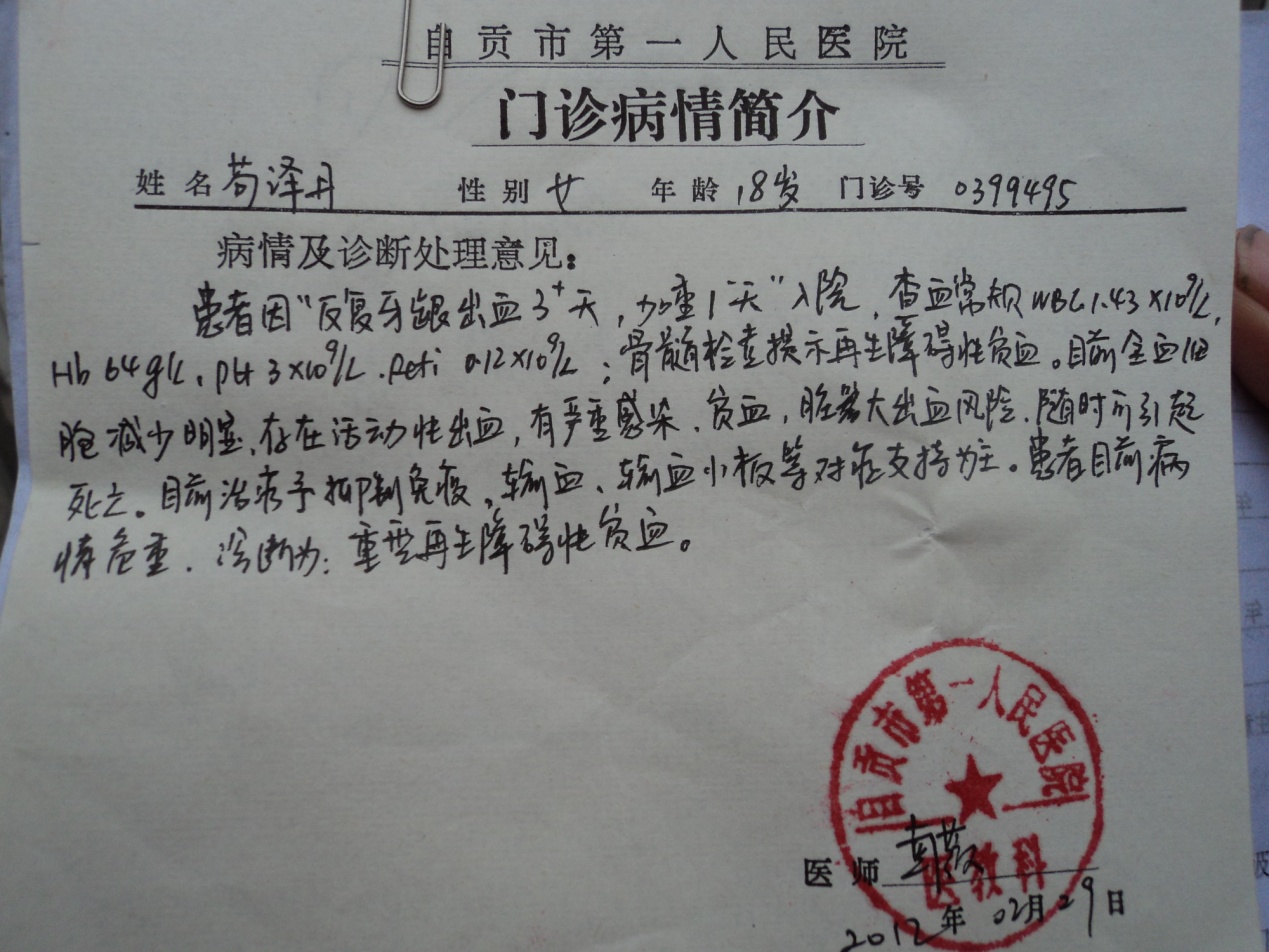 自贡市第一人民医院
门诊病情简介
姓名 苟泽丹 性别 女 年龄 18岁 门诊号 0399495
病情及诊断处理意见：
患者因“反复牙龈出血3⁺天，加重1天”入院，查血常规WBC1.43×10⁹/L，
Hb 64g/L、plt 3×10⁹/L、Reti 0.12×10⁹/L；骨髓检查提示再生障碍性贫血。目前全血细
胞减少明显，存在活动性出血，有严重感染、贫血，脏器大出血风险，随时可引起
死亡。目前治疗予抑制免疫、输血、输血小板等对症支持为主。患者目前病
情危重，诊断为：重型再生障碍性贫血。
自贡市第一人民医院
医教科
医师
2012年02月29日